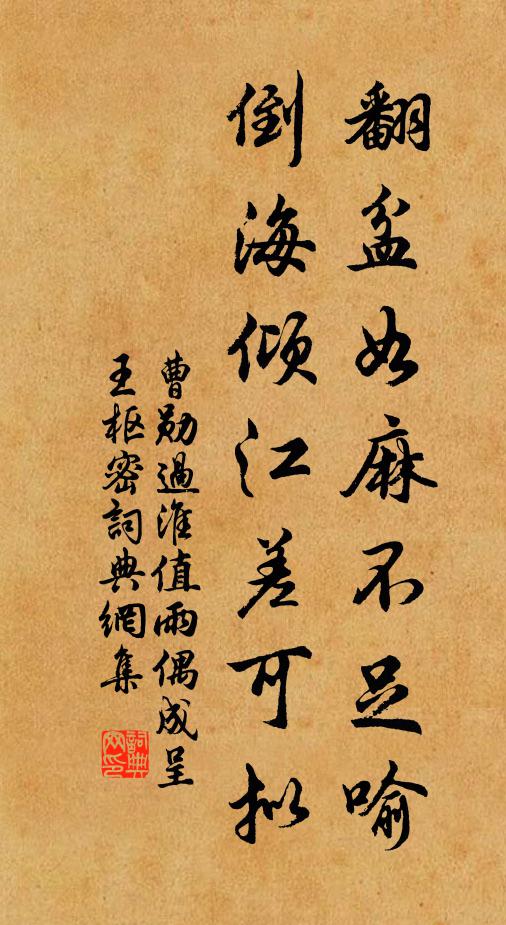 翻盆如麻不足喻
倒海倾江差可拟
曹勋過淮值雨偶成呈
王枢密詞典網集
詞典網印